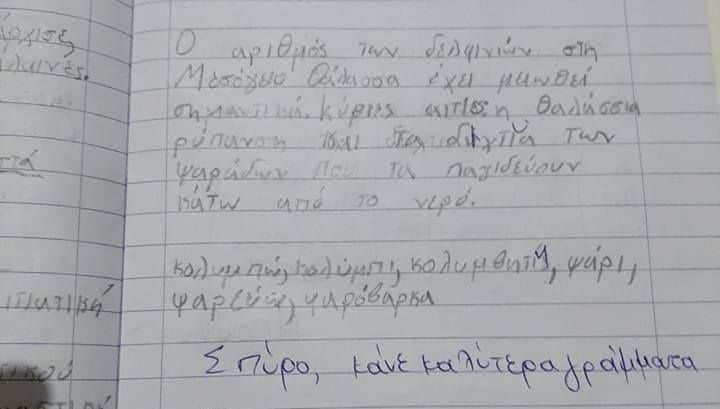 άρχισε
λαινές.
στά
ιτιατική
ικού
Ο αριθμός των δελφινιών στη
Μεσόγειο Θάλασσα έχει μειωθεί
σημαντικά. Κύριες αιτίες η θαλάσσια
ρύπανση και τα δίχτυα των
ψαράδων που τα παγιδεύουν
κάτω από το νερό.
κολυμπώ, κολύμπι, κολυμβητής, ψάρι,
ψαρεύω, ψαρόβαρκα
Σπύρο, κάνε καλύτερα γράμματα